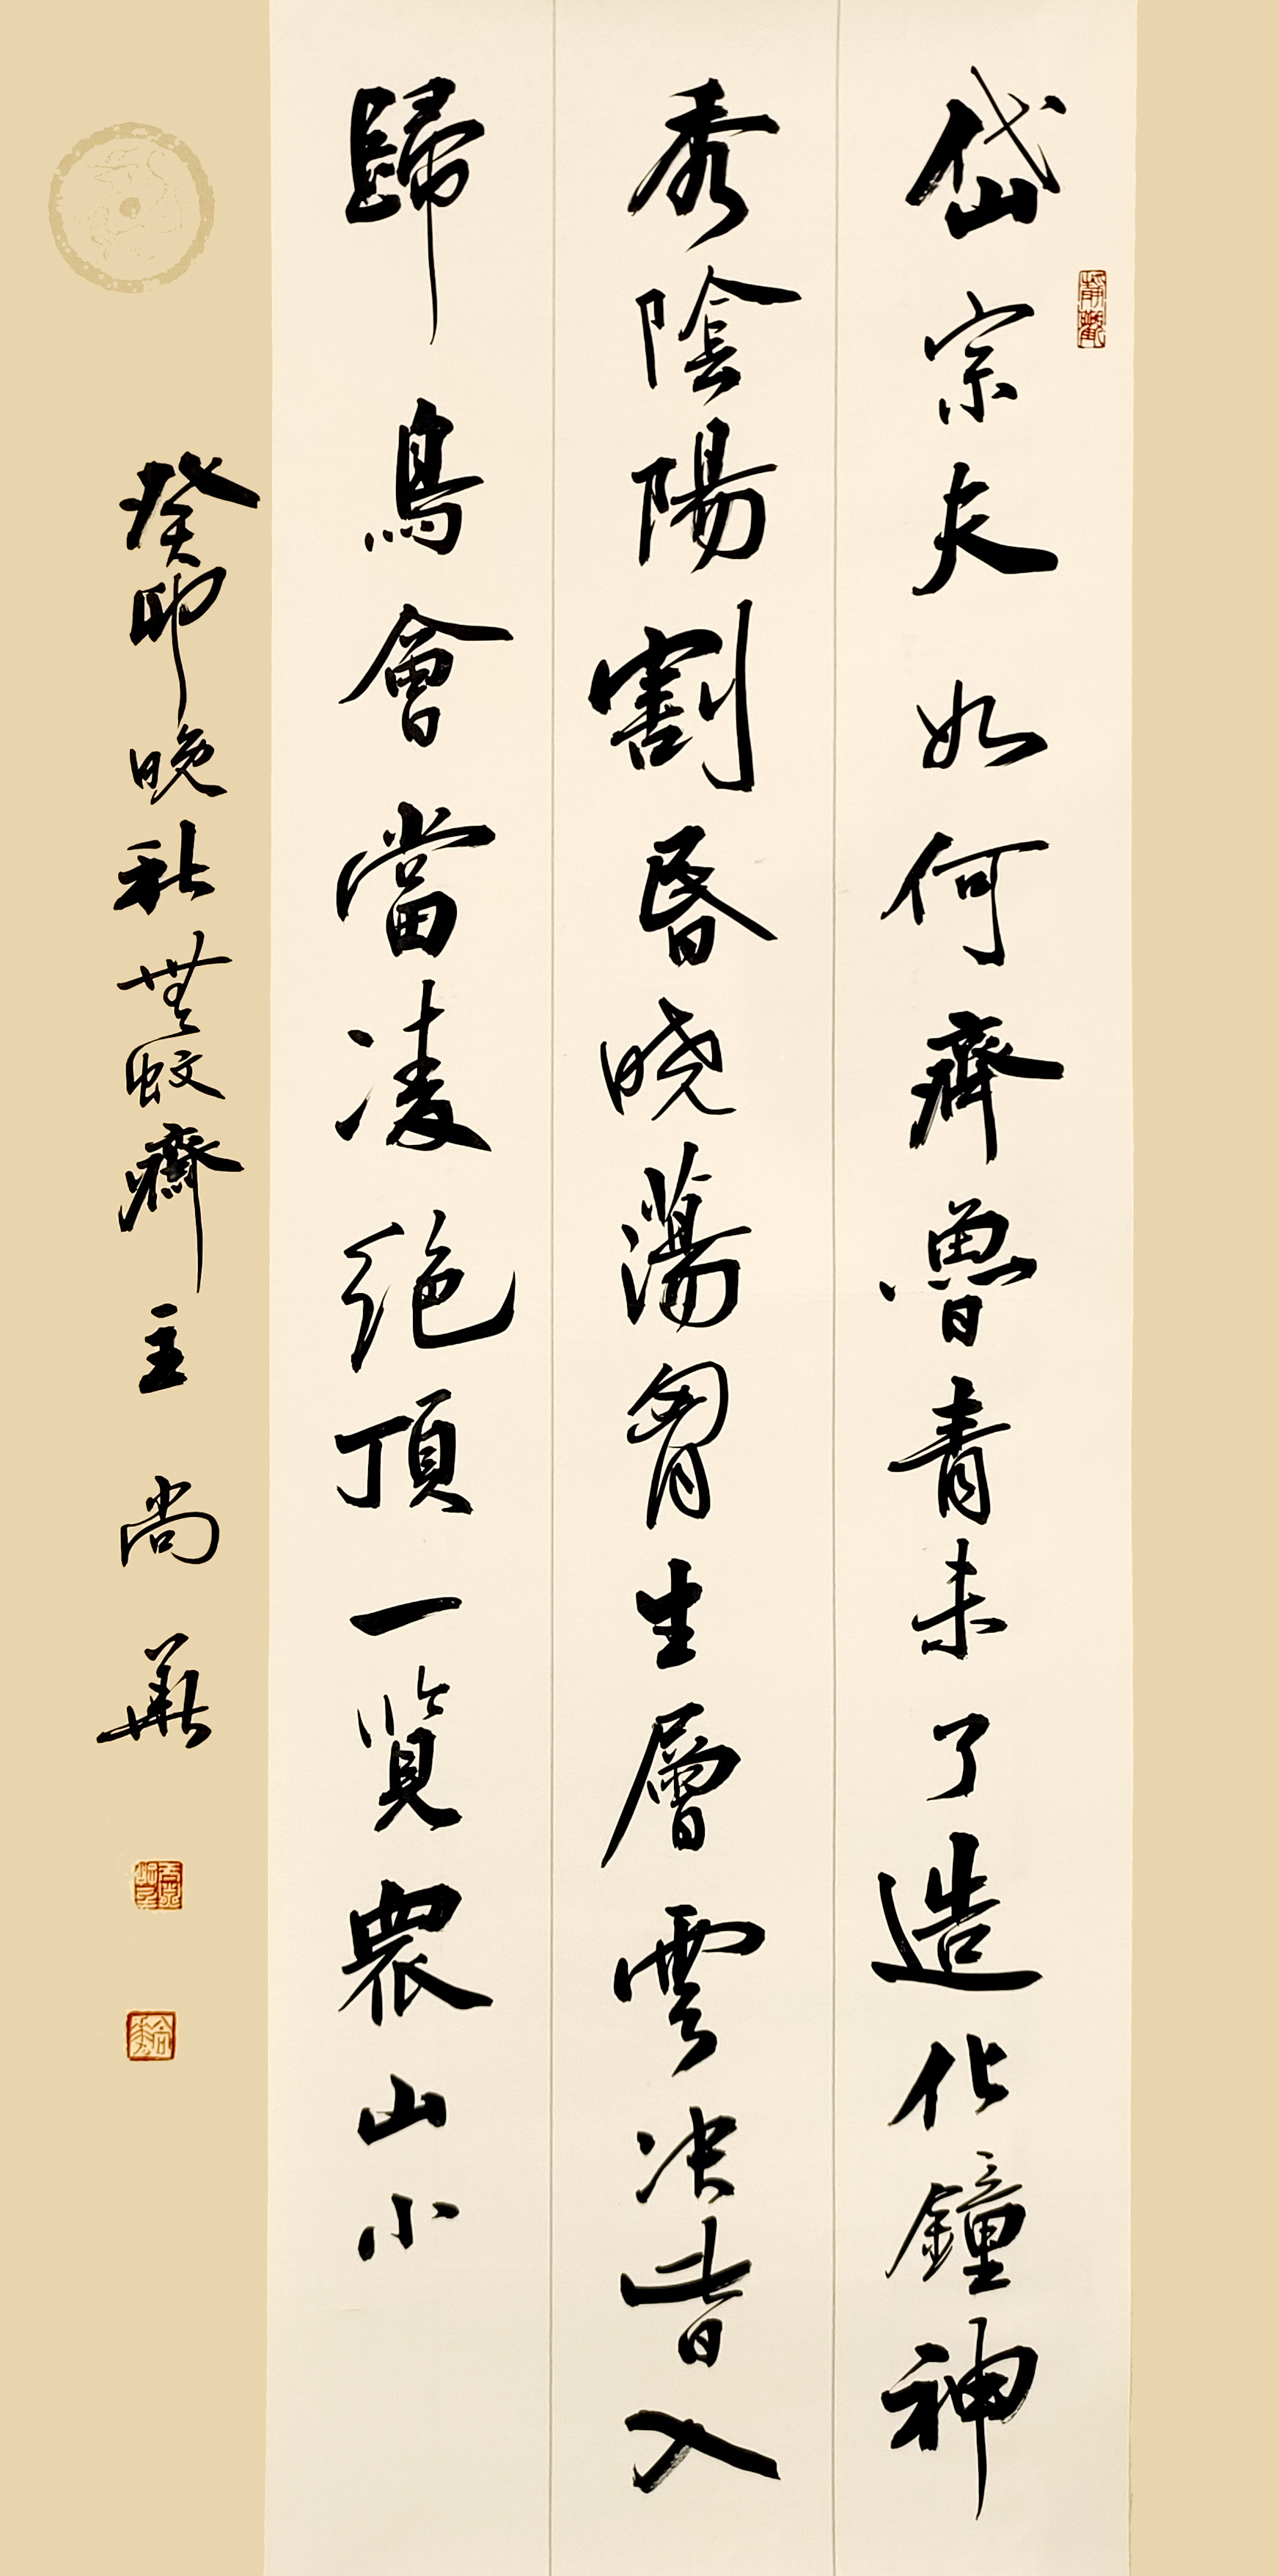 岱宗夫如何齊魯青未了造化鐘神
秀陰陽割昏曉蕩胷生層雲决眥入
歸鳥會當凌絕頂一覽眾山小
癸卯晚秋
主尚華
靜觀